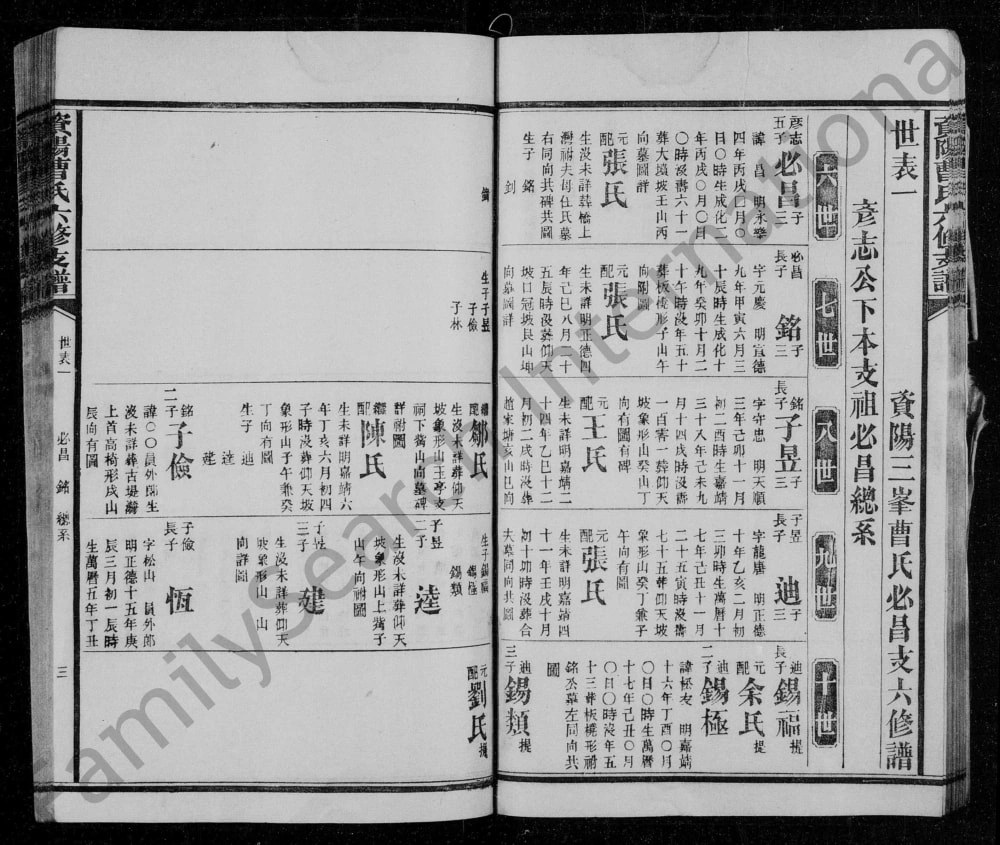 資陽曹氏六修支譜
世表一
資陽三峯曹氏必昌支六修譜
彥志公下本支祖必昌總系
六世
七世
八世
九世
十世
彥志
五子
必昌
子三
諱昌 明永樂
四年丙戌〇月〇
日〇時生成化二
年丙戌〇月〇月
〇時沒壽六十一
葬大塘坡王山丙
向墓圖詳
元配
張氏
生沒未詳葬橋上
灣祔夫母任氏墓
右同向共碑共圖
生子 銘
釗
鏞
必昌
長子
銘
子三
字元慶 明宣德
九年甲寅六月三
十辰時生成化十
九年癸卯十月二
十午時沒年五十
葬板櫈形子山午
向附圖
元配
張氏
生未詳明正德四
年己巳八月二十
五辰時沒葬仰天
坡口冠坡艮山坤
向墓圖詳
生子子昱
子儉
子林
銘
長子
子昱
子三
字守忠 明天順
三年己卯十一月
初二酉時生嘉靖
三十八年己未九
月十四戌時沒壽
一百零一葬仰天
坡象形山癸山丁
向有圖有碑
元配
王氏
生未詳明嘉靖二
十四年乙巳十二
月初二戌時沒葬
趙家塘亥山巳向
繼配
鄒氏
生沒未詳葬仰天
坡象形山王亭支
祠下嘴山南墓碑
詳祔圖
繼配
陳氏
生未詳明嘉靖六
年丁亥六月初四
子時沒葬仰天坡
象形山子午兼癸
丁向有圖
生子 迪
逵
建
銘
二子
子儉
諱〇〇員外郎生
沒未詳葬古堤瀞
上首高椅形戌山
辰向有圖
子昱
長子
迪
子三
字龍唐 明正德
十年乙亥二月初
三卯時生萬曆十
七年己丑十一月
二十五寅時沒壽
七十五葬仰天坡
象形山癸丁兼子
午向有圖
元配
張氏
生未詳明嘉靖四
十一年壬戌十月
初十卯時沒葬合
夫墓同向共圖
生子錫福
錫極
錫類
子昱
二子
逵
生沒未詳葬仰天
坡象形山上嘴子
山午向祔圖
子昱
三子
建
生沒未詳葬仰天
坡象形山 山
向詳圖
子儉
長子
恆
字松山 員外郎
明正德十五年庚
辰三月初一辰時
生萬曆五年丁丑
迪
長子
錫福
提
元配
余氏
提
迪
二子
錫極
諱松友 明嘉靖
十六年丁酉〇月
〇日〇時生萬曆
十七年己丑〇月
〇日〇時沒年五
十三葬板櫈形祔
銘公墓左同向共
圖
迪
三子
錫類
提
元配
劉氏
提
資陽曹氏六修支譜
世表一
必昌 銘 總系
三
FamilySearch International